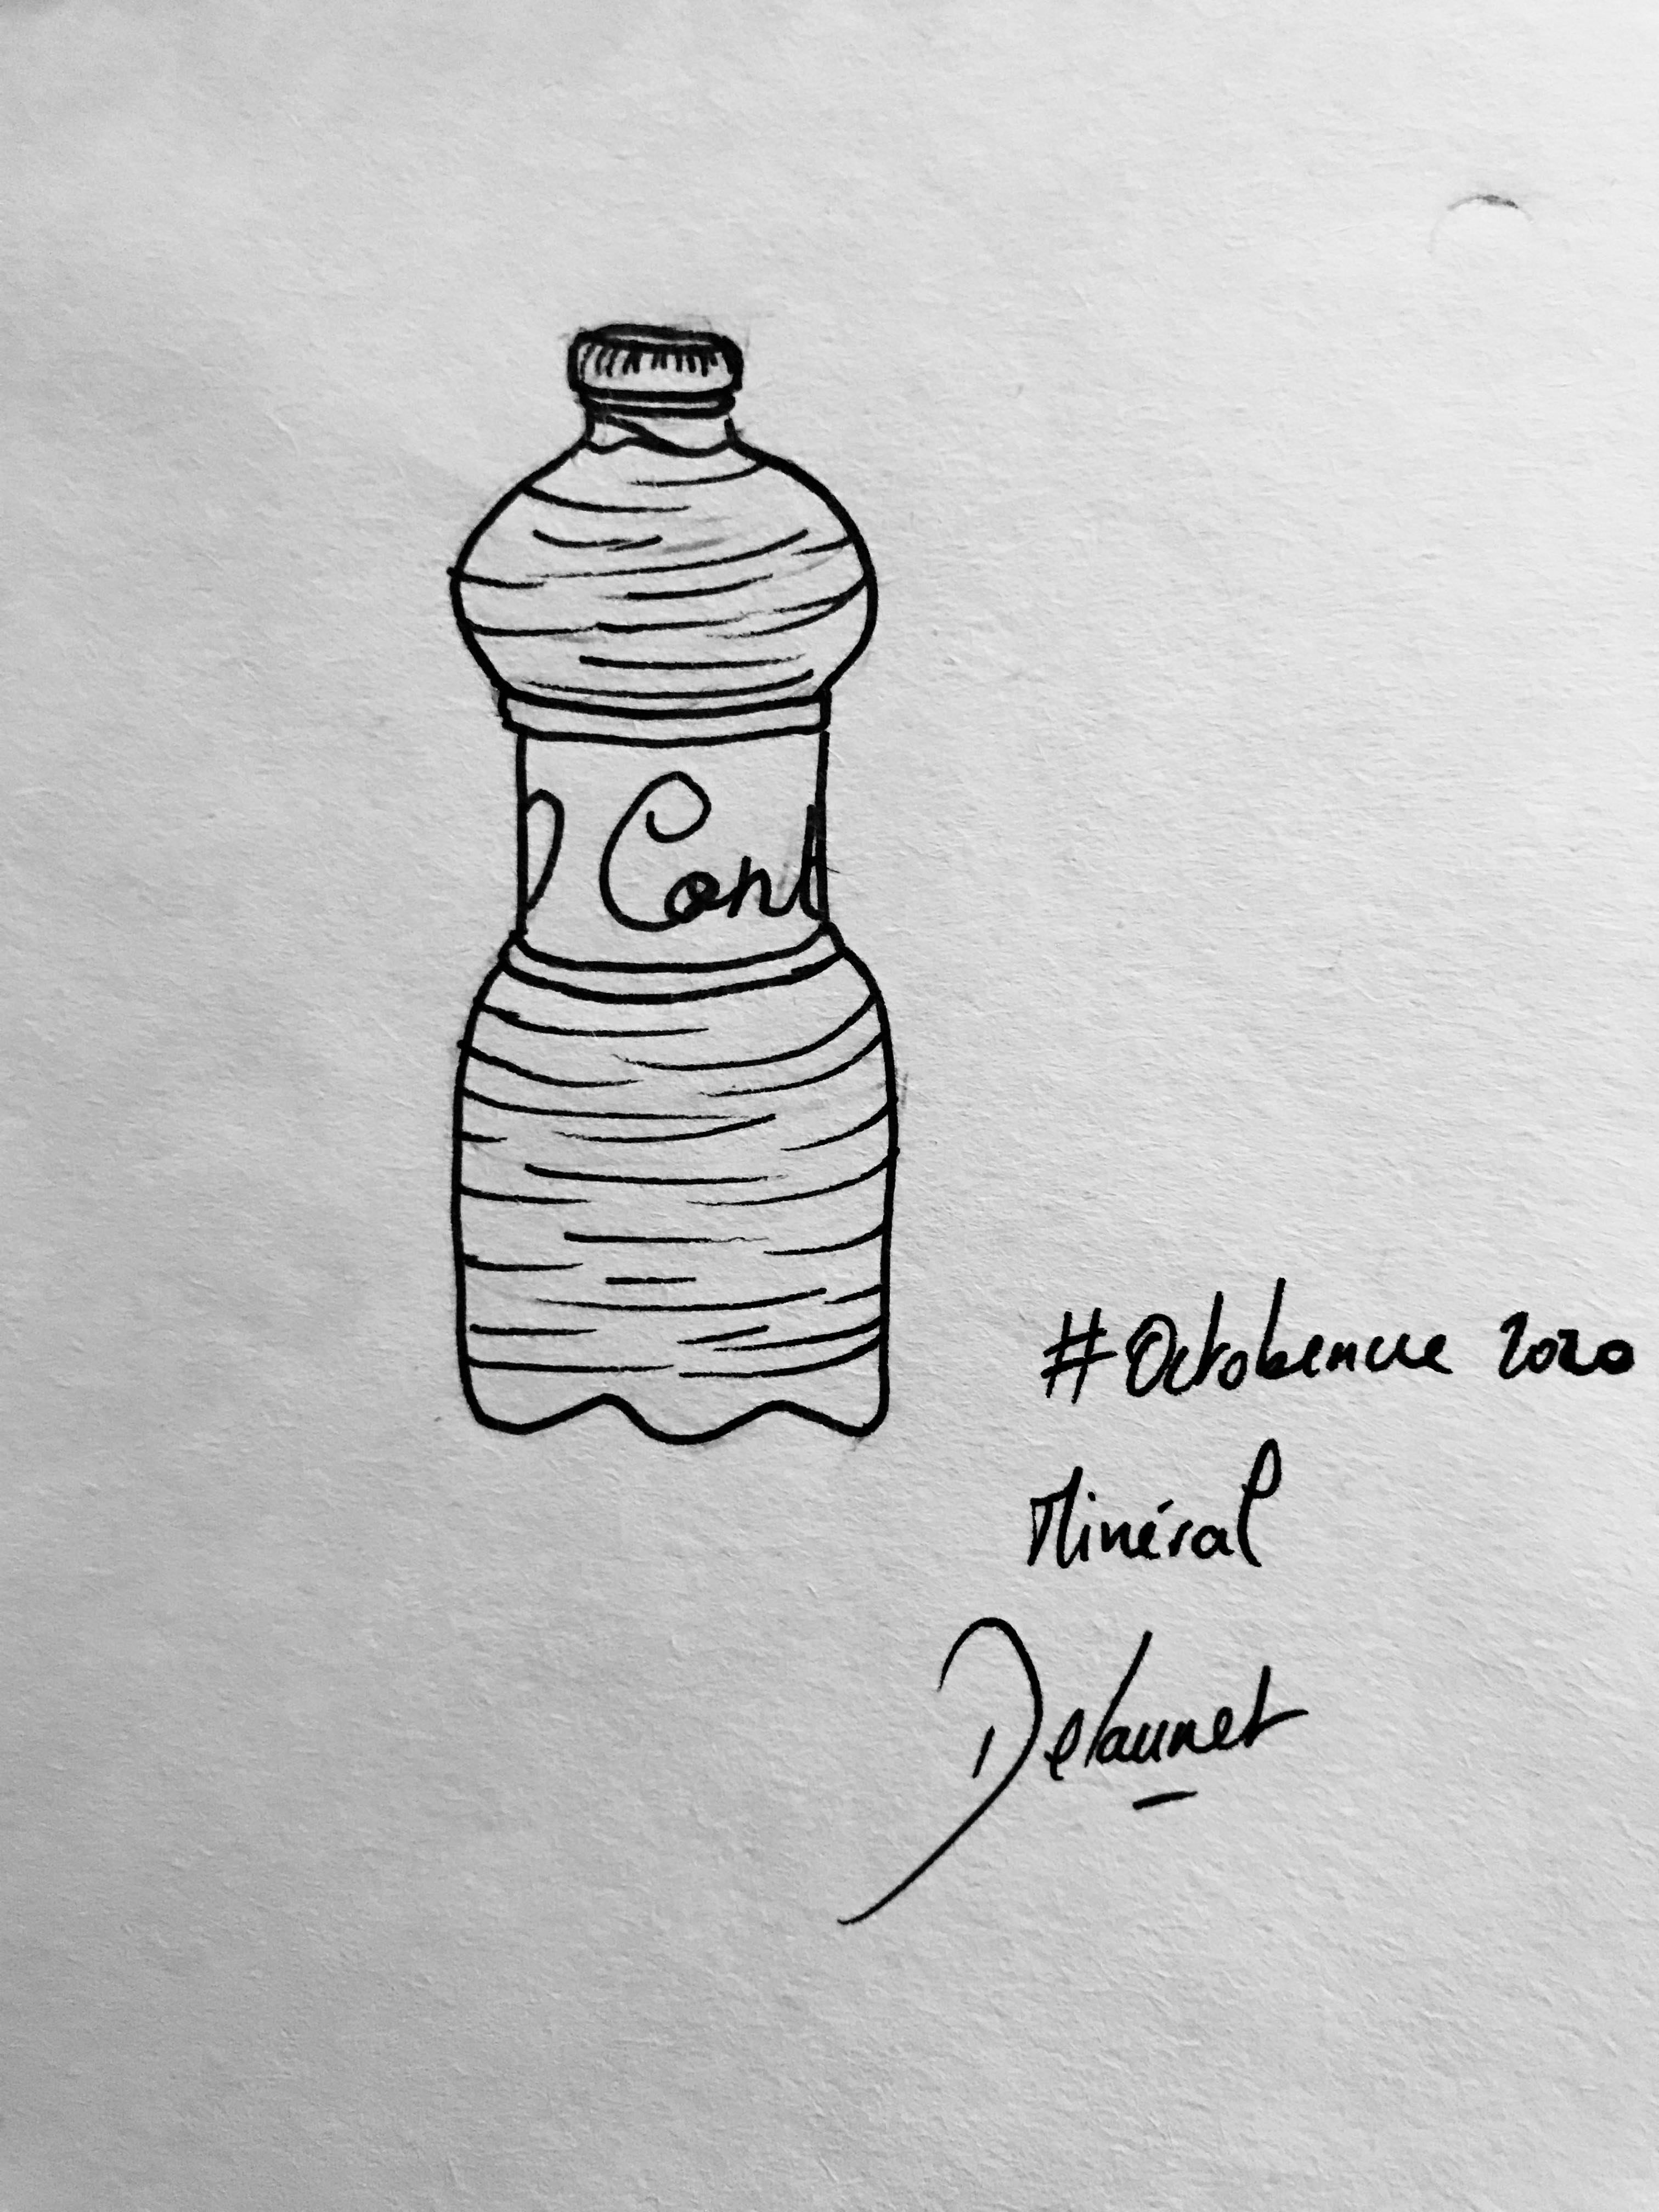 Cont
#Octobencre 2020
Minéral
Delaunet